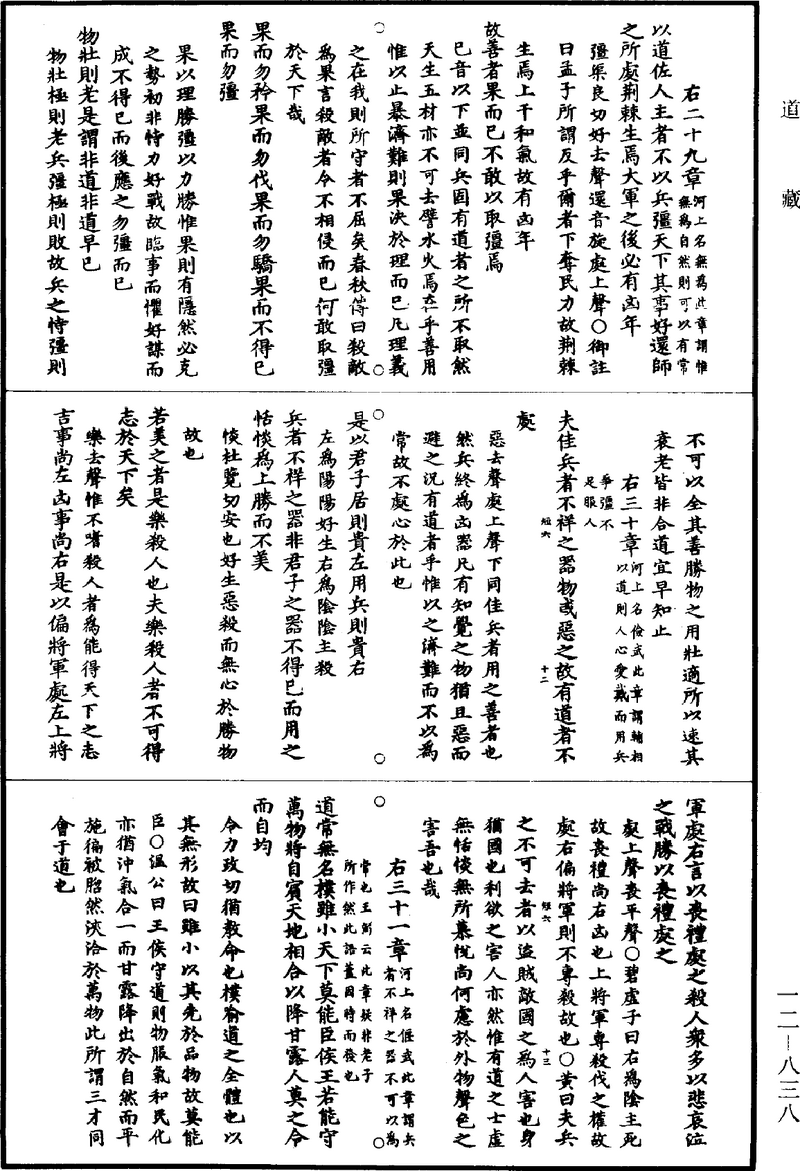 道藏
右二十九章河上名無爲此章謂惟
無爲自然則可以有常
以道佐人主者不以兵彊天下其事好還師
之所處荆棘生焉大軍之後必有凶年
彊渠良切好去聲還音旋處上聲○御註
曰孟子所謂反乎爾者下奪民力故荆棘
生焉上干和氣故有凶年
故善者果而已不敢以取彊焉
已音以下並同兵固有道者之所不取然
天生五材亦不可去譬水火焉在乎善用
惟以止暴濟難則果決於理而已凡理義
之在我則所守者不屈矣春秋傳曰殺敵
爲果言殺敵者令不相侵而已何敢取彊
於天下哉
果而勿矜果而勿伐果而勿驕果而不得已
果而勿彊
果以理勝彊以力勝惟果則有隱然必克
之勢初非恃力好戰故臨事而懼好謀而
成不得已而後應之勿彊而已
物壯則老是謂非道非道早已
物壯極則老兵彊極則敗故兵之恃彊則
不可以全其善勝物之用壯適所以速其
衰老皆非合道宜早知止
右三十章河上名儉武此章謂輔相
以道則人心愛戴而用兵
爭彊不
足服人
夫佳兵者不祥之器物或惡之故有道者不
短六
十二
處
惡去聲處上聲下同佳兵者用之善者也
然兵終爲凶器凡有知覺之物猶且惡而
避之況有道者乎惟以之濟難而不以爲
常故不處心於此也
是以君子居則貴左用兵則貴右
左爲陽陽好生右爲陰陰主殺
兵者不祥之器非君子之器不得已而用之
恬惔爲上勝而不美
惔杜覽切安也好生惡殺而無心於勝物
故也
若美之者是樂殺人也夫樂殺人者不可得
志於天下矣
樂去聲惟不嗜殺人者爲能得天下之志
吉事尚左凶事尚右是以偏將軍處左上將
軍處右言以喪禮處之殺人衆多以悲哀泣
之戰勝以喪禮處之
處上聲喪平聲○碧虛子曰右爲陰主死
故喪禮尚右凶也上將軍專殺伐之權故
處右偏將軍則不專殺故也○黄曰夫兵
之不可去者以盜賊敵國之爲人害也身
短六
十三
猶國也利欲之害人亦然惟有道之士虛
無恬惔無所慕恱尚何慮於外物聲色之
害吾也哉
右三十一章河上名偃武此章謂兵
者不祥之器不可以爲
常也王弼云此章疑非老子
所作然此語蓋因時而發也
道常無名樸雖小天下莫能臣侯王若能守
萬物將自賓天地相合以降甘露人莫之令
而自均
令力政切猶敎命也樸喻道之全體也以
其無形故曰雖小以其先於品物故莫能
臣○温公曰王侯守道則物服氣和民化
亦猶沖氣合一而甘露降出於自然而平
施徧被脗然浹洽於萬物此所謂三才同
會于道也
一二—八三八